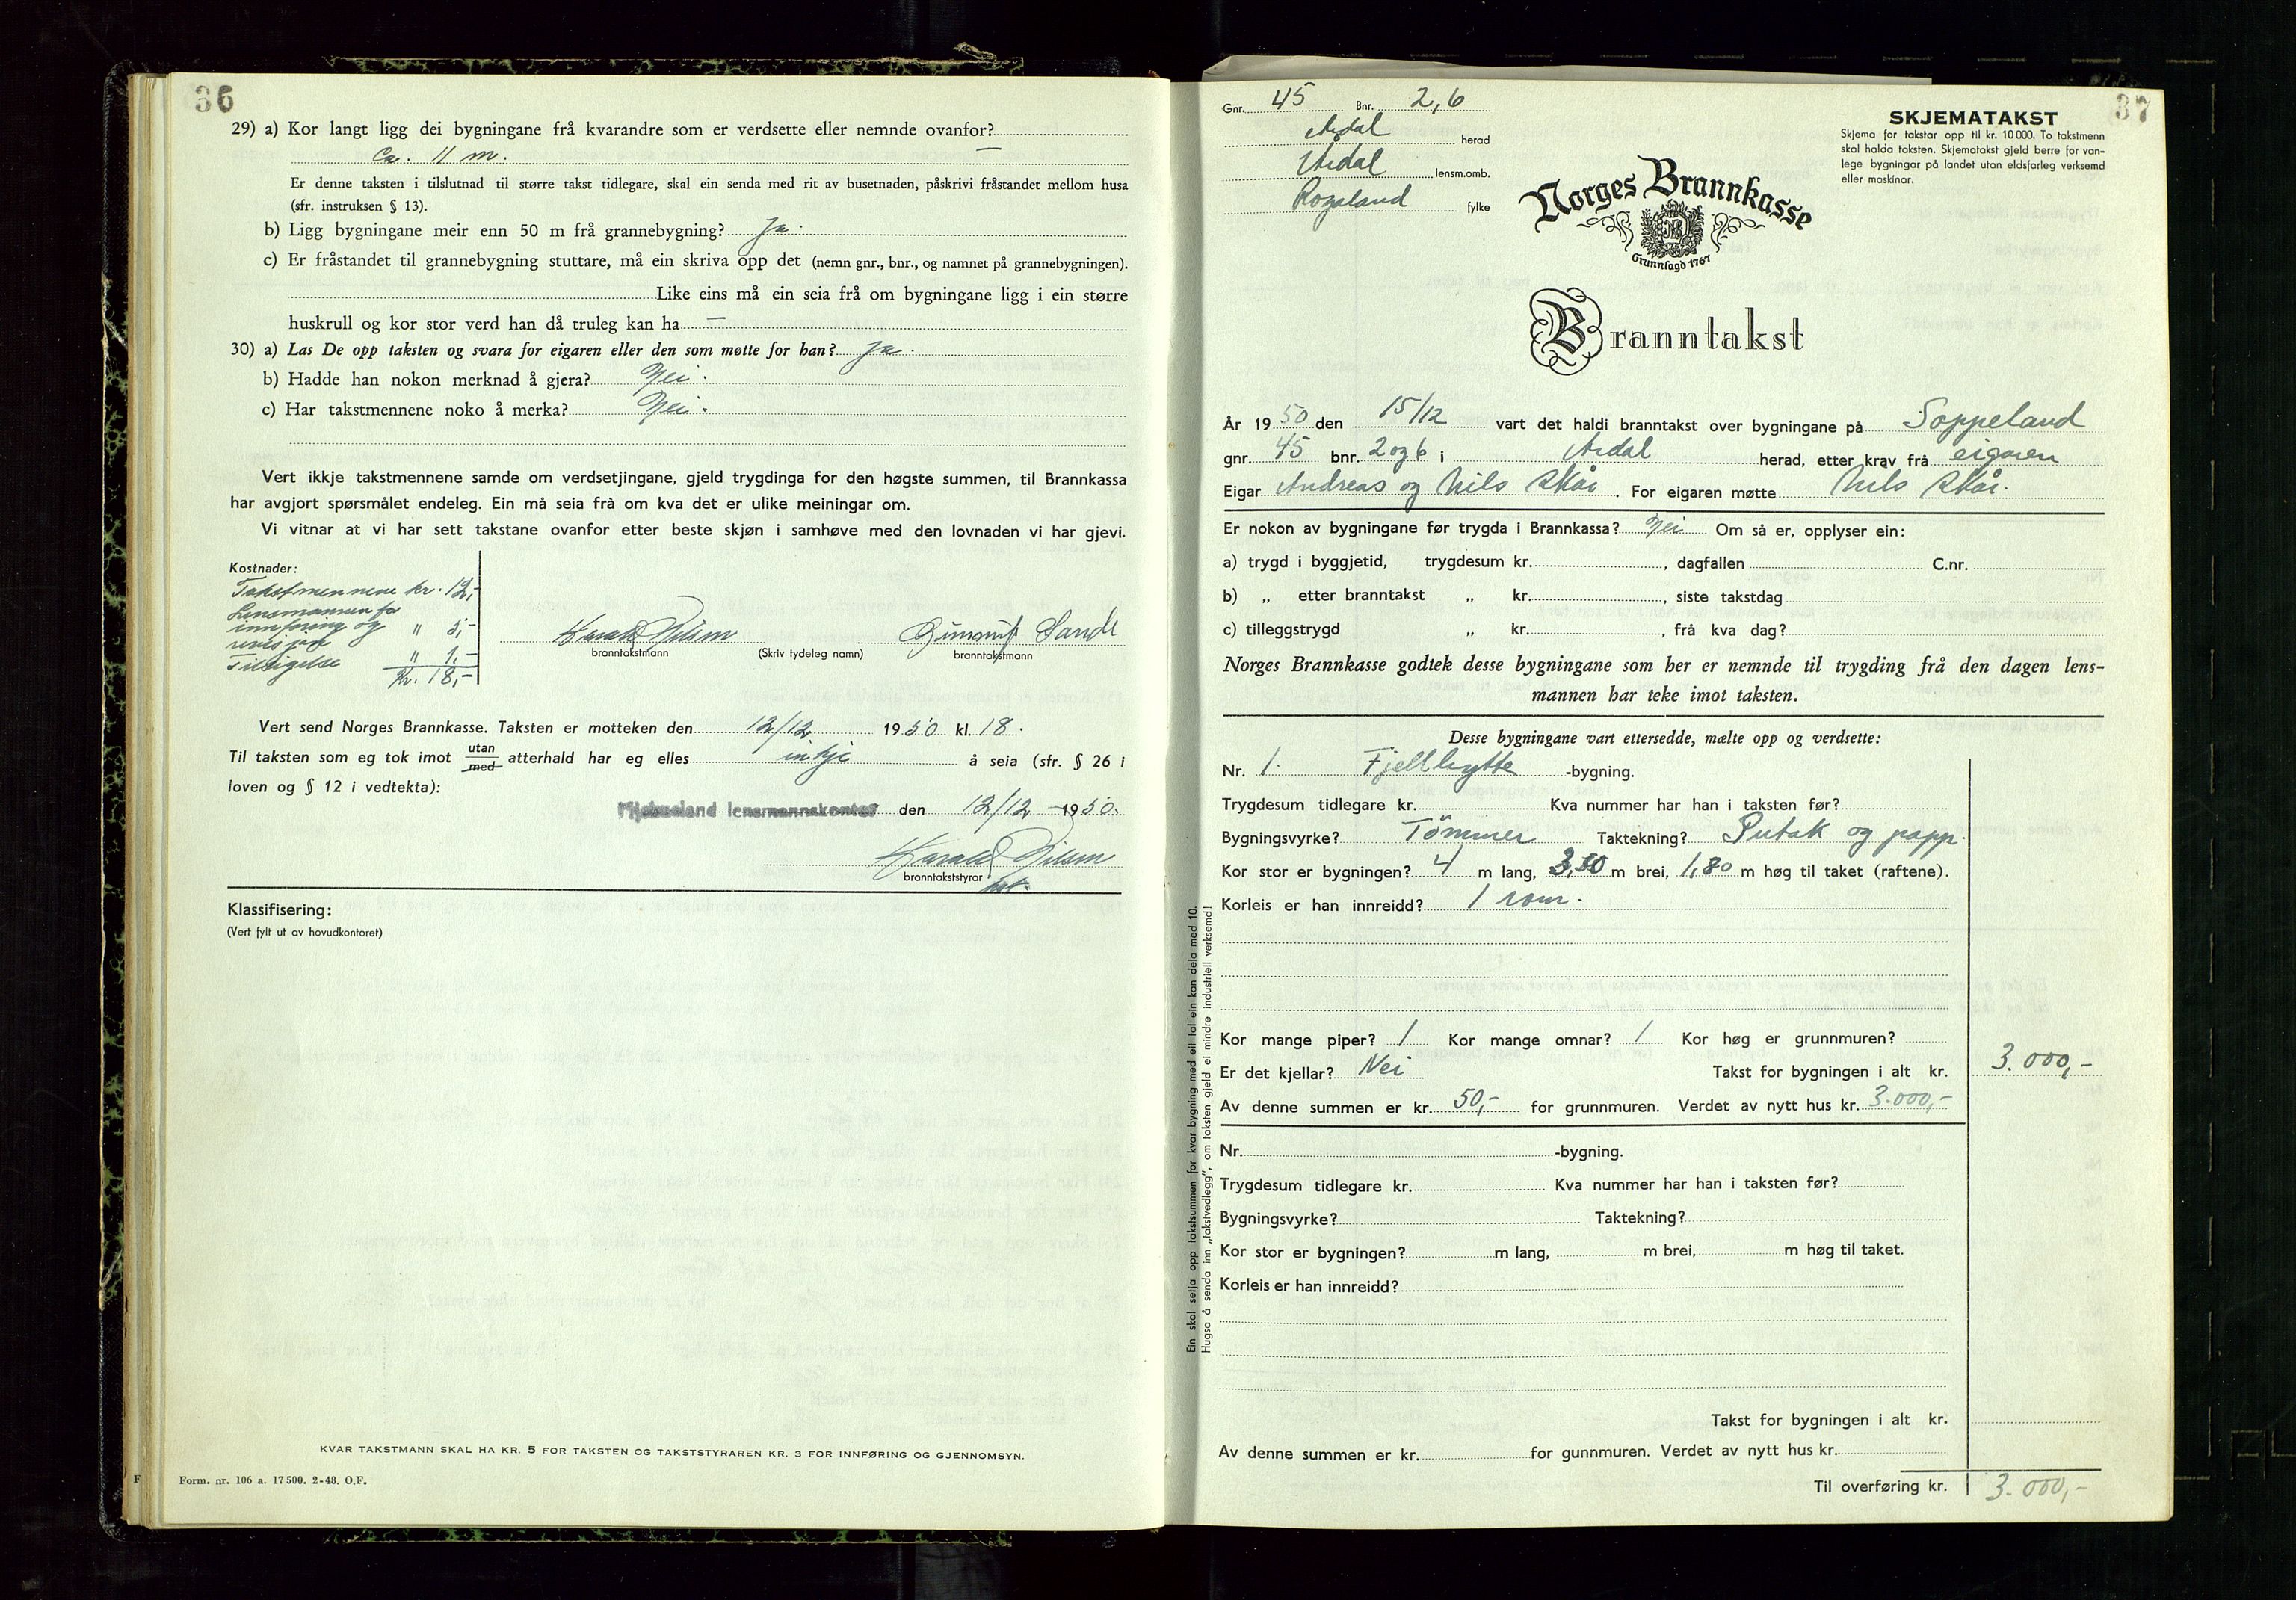 36
29) a) Kor langt ligg dei bygningane frå kvarandre som er verdsette eller nemnde ovanfor? —
Ca. 11 m.
Er denne taksten i tilslutnad til større takst tidlegare, skal ein senda med rit av busetnaden, påskrivi fråstandet mellom husa
(sfr. instruksen § 13).
b) Ligg bygningane meir enn 50 m frå grannebygning? Ja.
c) Er fråstandet til grannebygning stuttare, må ein skriva opp det (nemn gnr., bnr., og namnet på grannebygningen).
Like eins må ein seia frå om bygningane ligg i ein større
huskrull og kor stor verd han då truleg kan ha —
30) a) Las De opp taksten og svara for eigaren eller den som møtte for han? Ja.
b) Hadde han nokon merknad å gjera? Nei.
c) Har takstmennene noko å merka? Nei.
Vert ikkje takstmennene samde om verdsetjingane, gjeld trygdinga for den høgste summen, til Brannkassa
har avgjort spørsmålet endeleg. Ein må seia frà om kva det er ulike meiningar om.
Vi vitnar at vi har sett takstane ovanfor etter beste skjøn i samhøve med den lovnaden vi har gjevi.
Kostnader:
Takstmennene kr. 12,-
Lensmannen for
innføring og " 5,-
revisjon
Tilsigelse " 1,-
Kr. 18,-
Harald Nilsen Gunnulf Sande
branntakstmann (Skriv tydeleg namn) branntakstmann
Vert send Norges Brannkasse. Taksten er motteken den 12/12 1950 kl. 18.
Til taksten som eg tok imot utan/med atterhald har eg elles inkje å seia (sfr. § 26 i
loven og § 12 i vedtekta):
lensmannskontor den 12/12 - 1950.
Harald Nilsen
branntakststyrar
Klassifisering:
(Vert fylt ut av hovudkontoret)
KVAR TAKSTMANN SKAL HA KR. 5 FOR TAKSTEN OG TAKSTSTYRAREN KR. 3 FOR INNFØRING OG GJENNOMSYN.
F Form. nr. 106 a. 17 500. 2-48. O.F.
37
Gnr. 45 Bnr. 2,6
Årdal herad
Årdal lensm.omb.
Rogaland fylke
SKJEMATAKST
Skjema for takstar opp til kr. 10 000. To takstmenn
skal halda taksten. Skjematakst gjeld berre for van-
lege bygningar på landet utan eldsfarleg verksemd
eller maskinar.
Norges Brannkasse
NB
Grunnlagd 1767
Branntakst
År 1950 den 15/12 vart det haldi branntakst over bygningane på Soppeland
gnr. 45 bnr. 2 og 6 i Årdal herad, etter krav frå eigaren
Eigar Andreas og Nils Skår. For eigaren møtte Nils Skår.
Er nokon av bygningane før trygda i Brannkassa? Nei Om så er, opplyser ein:
a) trygd i byggjetid, trygdesum kr. , dagfallen C.nr.
b) „ etter branntakst „ kr. , siste takstdag
c) tilleggstrygd „ kr. , frå kva dag?
Norges Brannkasse godtek desse bygningane som her er nemnde til trygding frå den dagen lens-
mannen har teke imot taksten.
Desse bygningane vart ettersedde, mælte opp og verdsette:
Nr. 1. Fjellhytte -bygning.
Trygdesum tidlegare kr. Kva nummer har han i taksten før?
Bygningsvyrke? Tömmer Taktekning? Sutak og papp.
Kor stor er bygningen? 4 m lang, 3,50 m brei, 1,80 m høg til taket (raftene).
Korleis er han innreidd? 1 rom.
Kor mange piper? 1 Kor mange omnar? 1 Kor høg er grunnmuren?
Er det kjellar? Nei Takst for bygningen i alt kr. 3.000,-
Av denne summen er kr. 50,- for grunnmuren. Verdet av nytt hus kr. 3.000,-
Nr. -bygning.
Trygdesum tidlegare kr. Kva nummer har han i taksten før?
Bygningsvyrke? Taktekning?
Kor stor er bygningen? m lang, m brei, m høg til taket.
Korleis er han innreidd?
Takst for bygningen i alt kr.
Av denne summen er kr. for gunnmuren. Verdet av nytt hus kr.
Til overføring kr. 3.000,-
Ein skal setja opp takstsummen for kvar bygning med eit tal ein kan dela med 10.
Hugsa å senda inn „takstvedlegg”, om taksten gjeld ei mindre industriell verksemd!